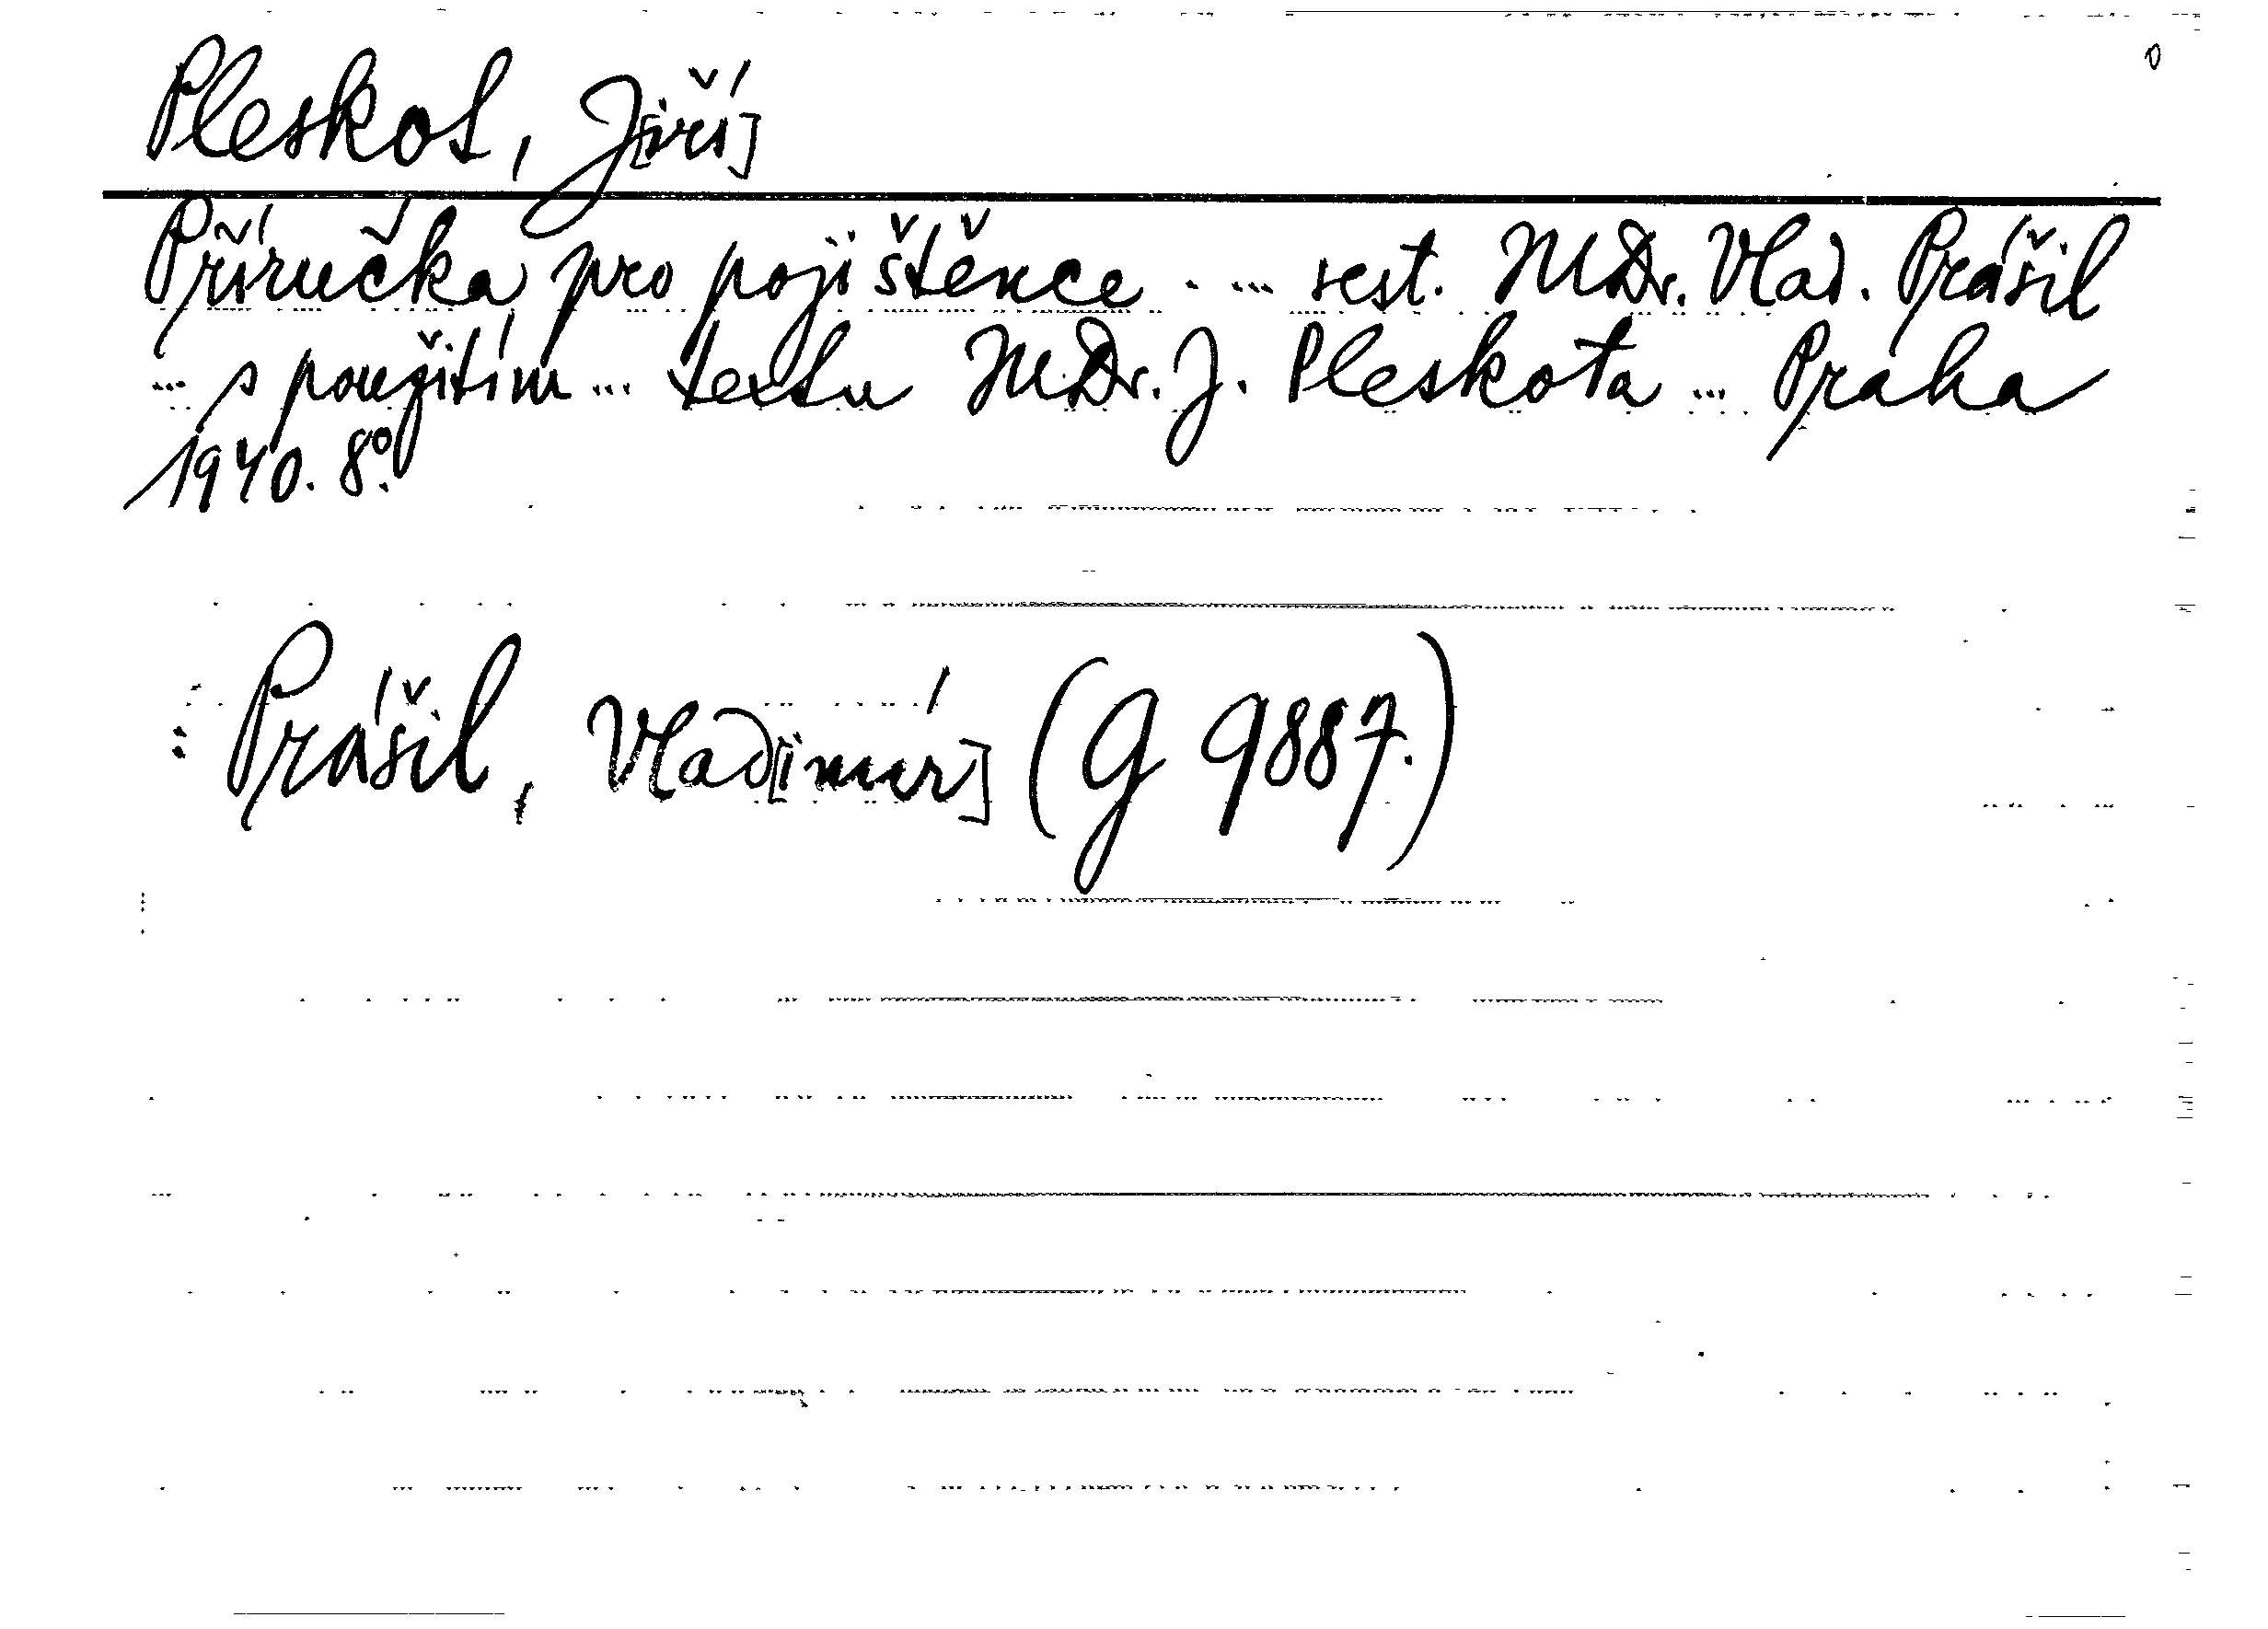 Pleskot, J[iří]
Příručka pro pojištěnce . ... sest. MDr. Vlad. Prášil
... s použitím ... textu MDr. J. Pleskota ... Praha
1940. 8°.
: Prášil, Vlad[imír] (G 9887.)